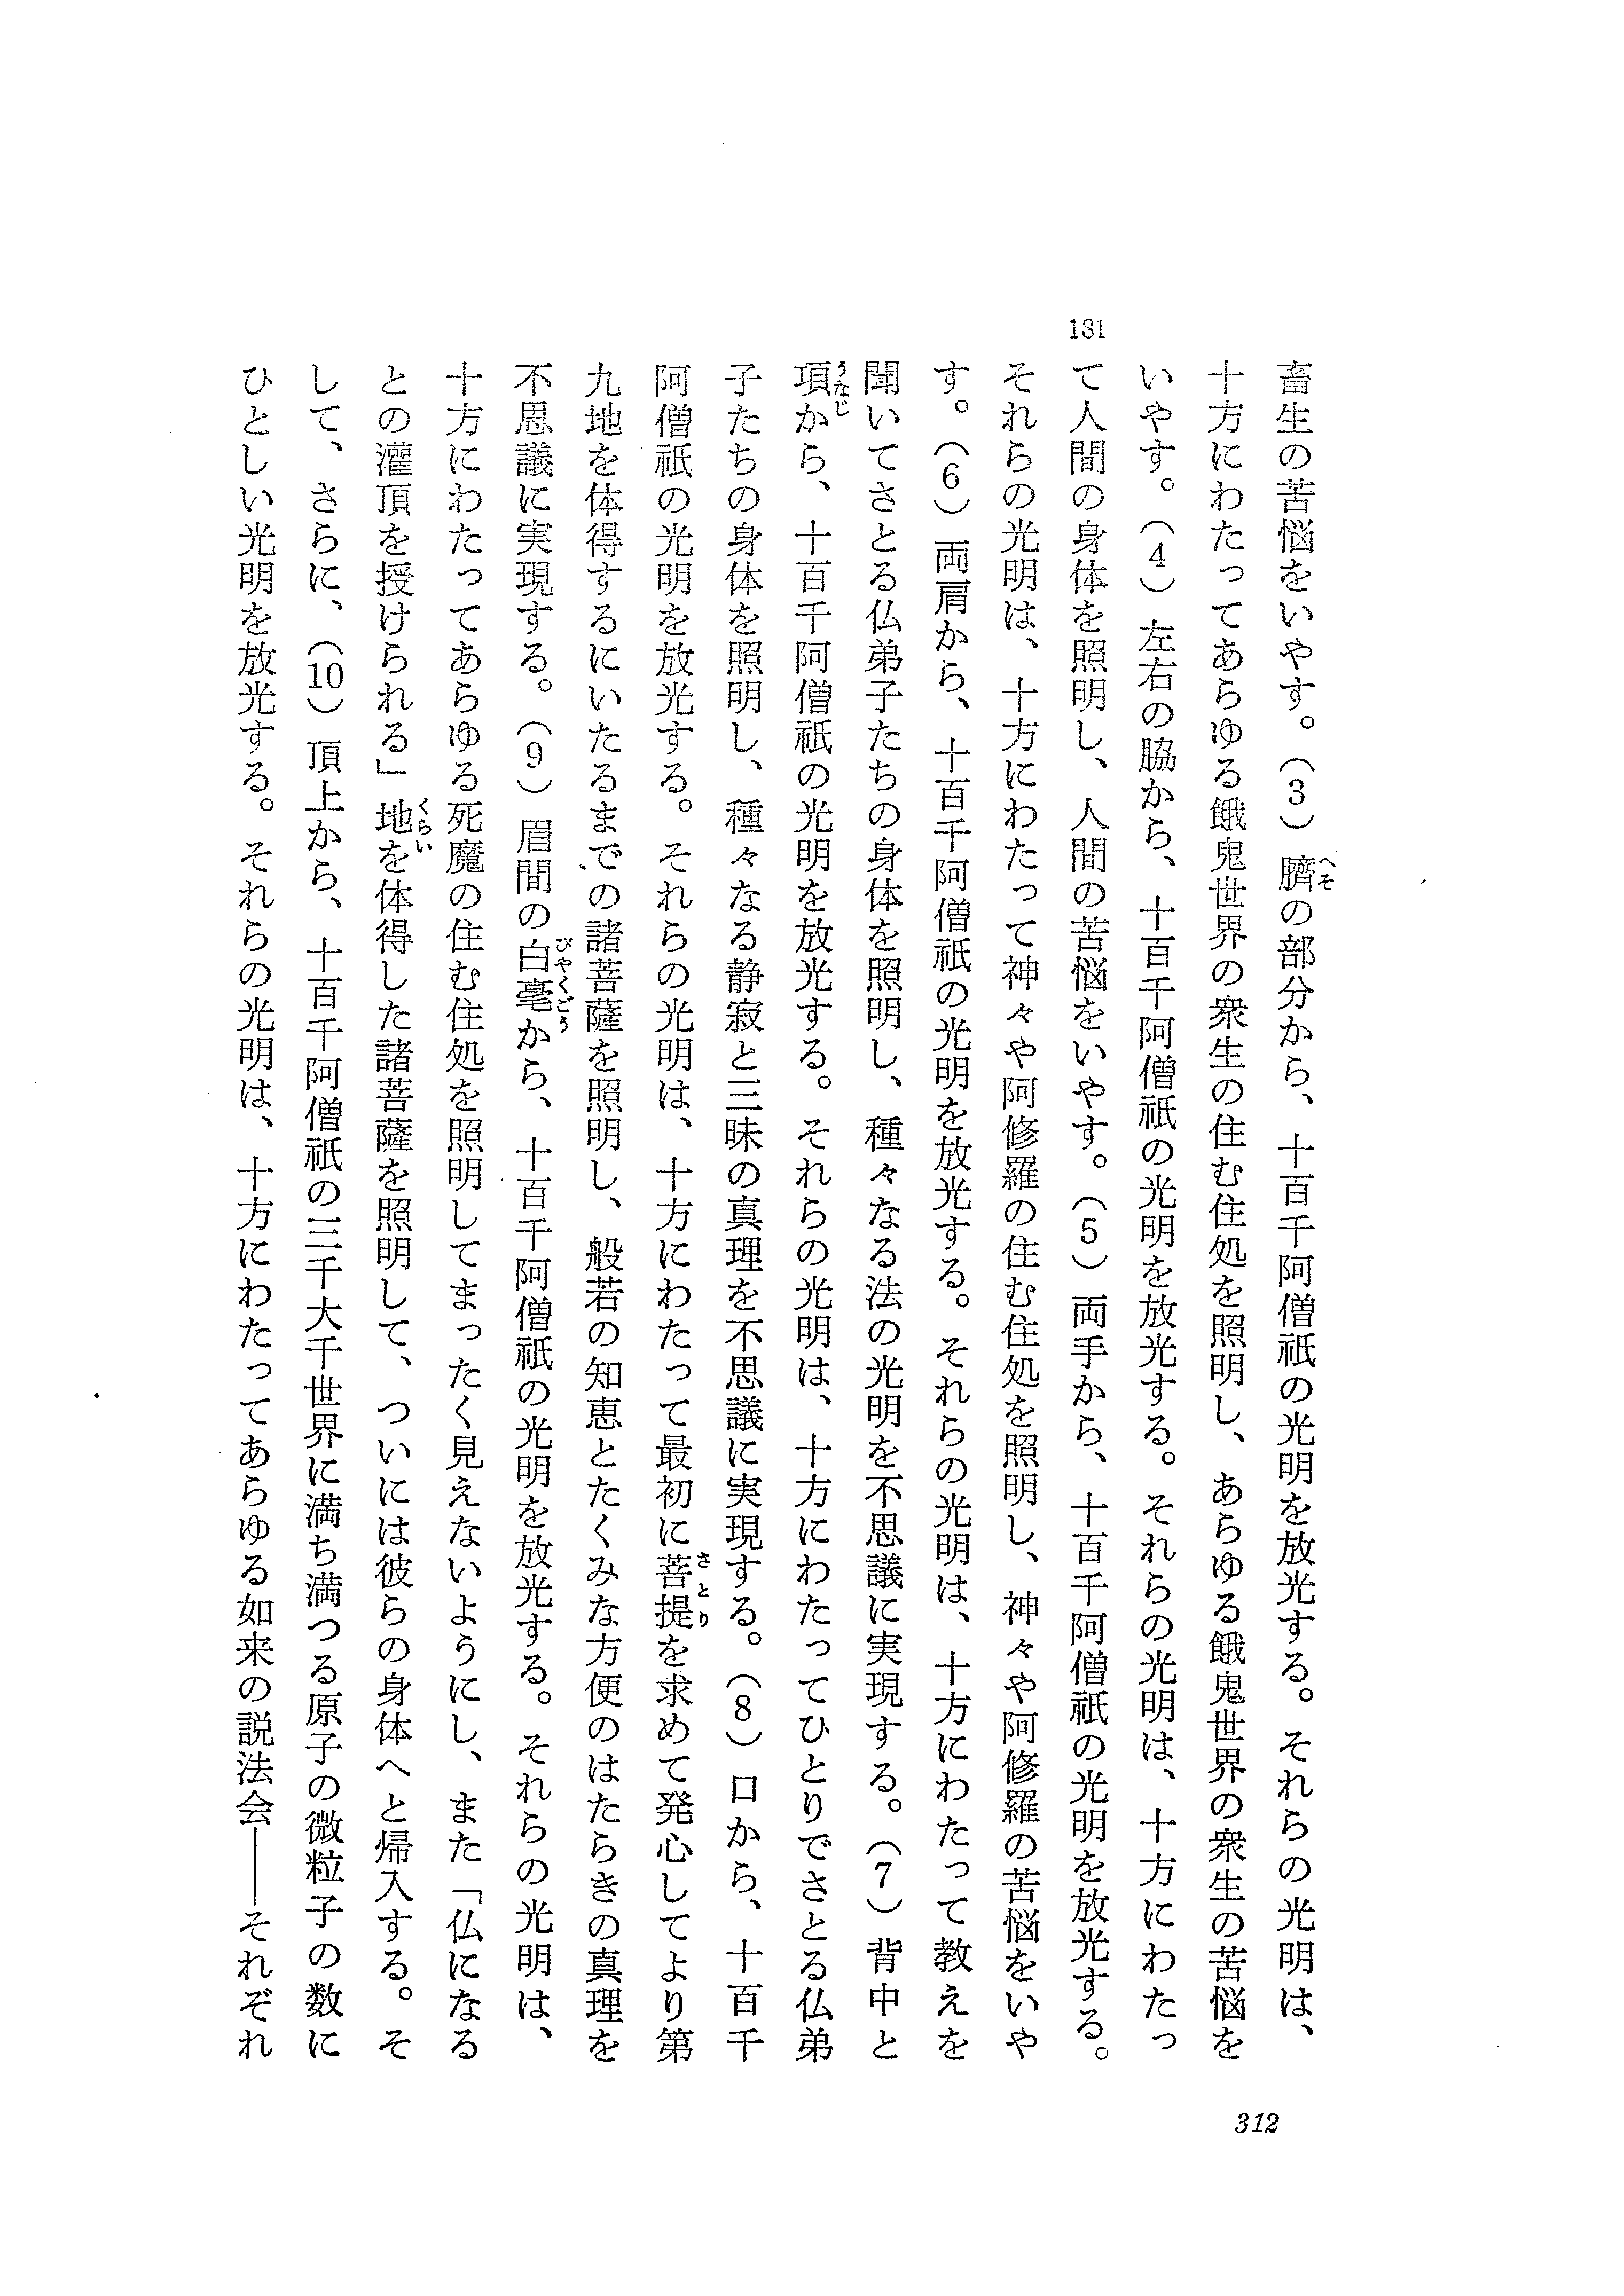 畜生の苦悩をいやす。（3）臍の部分から、十百千阿僧祇の光明を放光する。それらの光明は、
十方にわたってあらゆる餓鬼世界の衆生の住む住処を照明し、あらゆる餓鬼世界の衆生の苦悩を
いやす。（4）左右の脇から、十百千阿僧祇の光明を放光する。それらの光明は、十方にわたっ
181
て人間の身体を照明し、人間の苦悩をいやす。（5）両手から、十百千阿僧祇の光明を放光する。
それらの光明は、十方にわたって神々や阿修羅の住む住処を照明し、神々や阿修羅の苦悩をいや
す。（6）両肩から、十百千阿僧祇の光明を放光する。それらの光明は、十方にわたって教えを
聞いてさとる仏弟子たちの身体を照明し、種々なる法の光明を不思議に実現する。（7）背中と
項から、十百千阿僧祇の光明を放光する。それらの光明は、十方にわたってひとりでさとる仏弟
子たちの身体を照明し、種々なる静寂と三昧の真理を不思議に実現する。（8）口から、十百千
阿僧祇の光明を放光する。それらの光明は、十方にわたって最初に菩提を求めて発心してより第
九地を体得するにいたるまでの諸菩薩を照明し、般若の知恵とたくみな方便のはたらきの真理を
不思議に実現する。（9）眉間の白毫から、十百千阿僧祇の光明を放光する。それらの光明は、
十方にわたってあらゆる死魔の住む住処を照明してまったく見えないようにし、また「仏になる
との灌頂を授けられる」地を体得した諸菩薩を照明して、ついには彼らの身体へと帰入する。そ
して、さらに、（10）頂上から、十百千阿僧祇の三千大千世界に満ち満つる原子の微粒子の数に
ひとしい光明を放光する。それらの光明は、十方にわたってあらゆる如来の説法会――それぞれ
へそ
うなじ
さとり
びやくごう
くらい
312